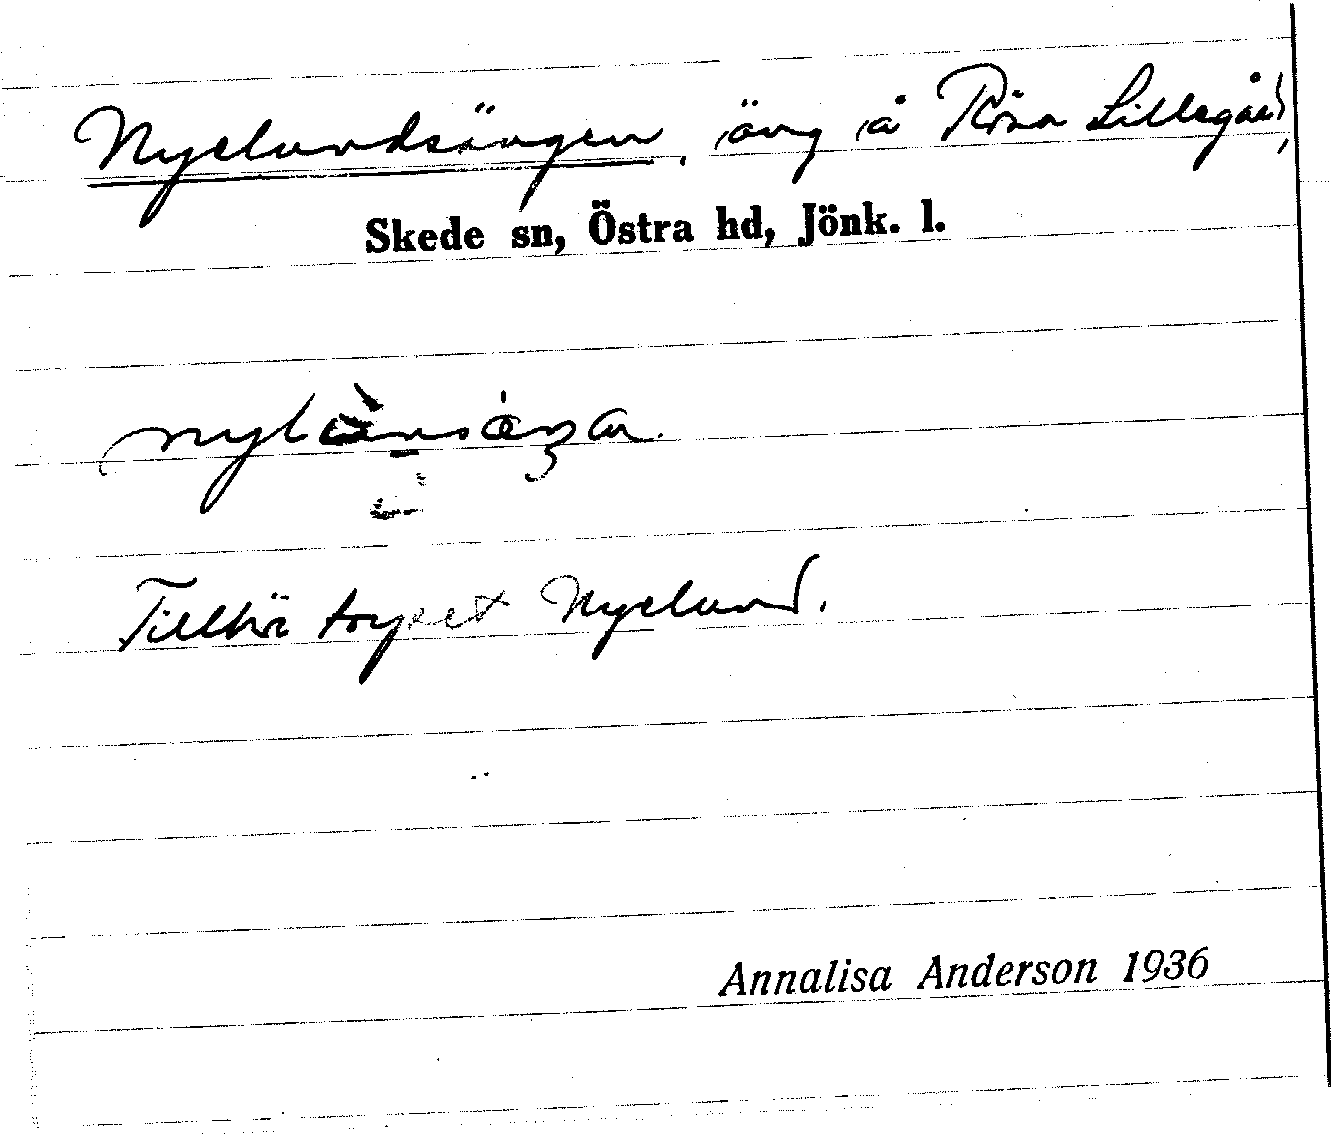 Nyelundsängen, äng å Röna Lillegård,
Skede sn, Östra hd, Jönk. l.
Tillhör torpet Nyelund.
Annalisa Anderson 1936